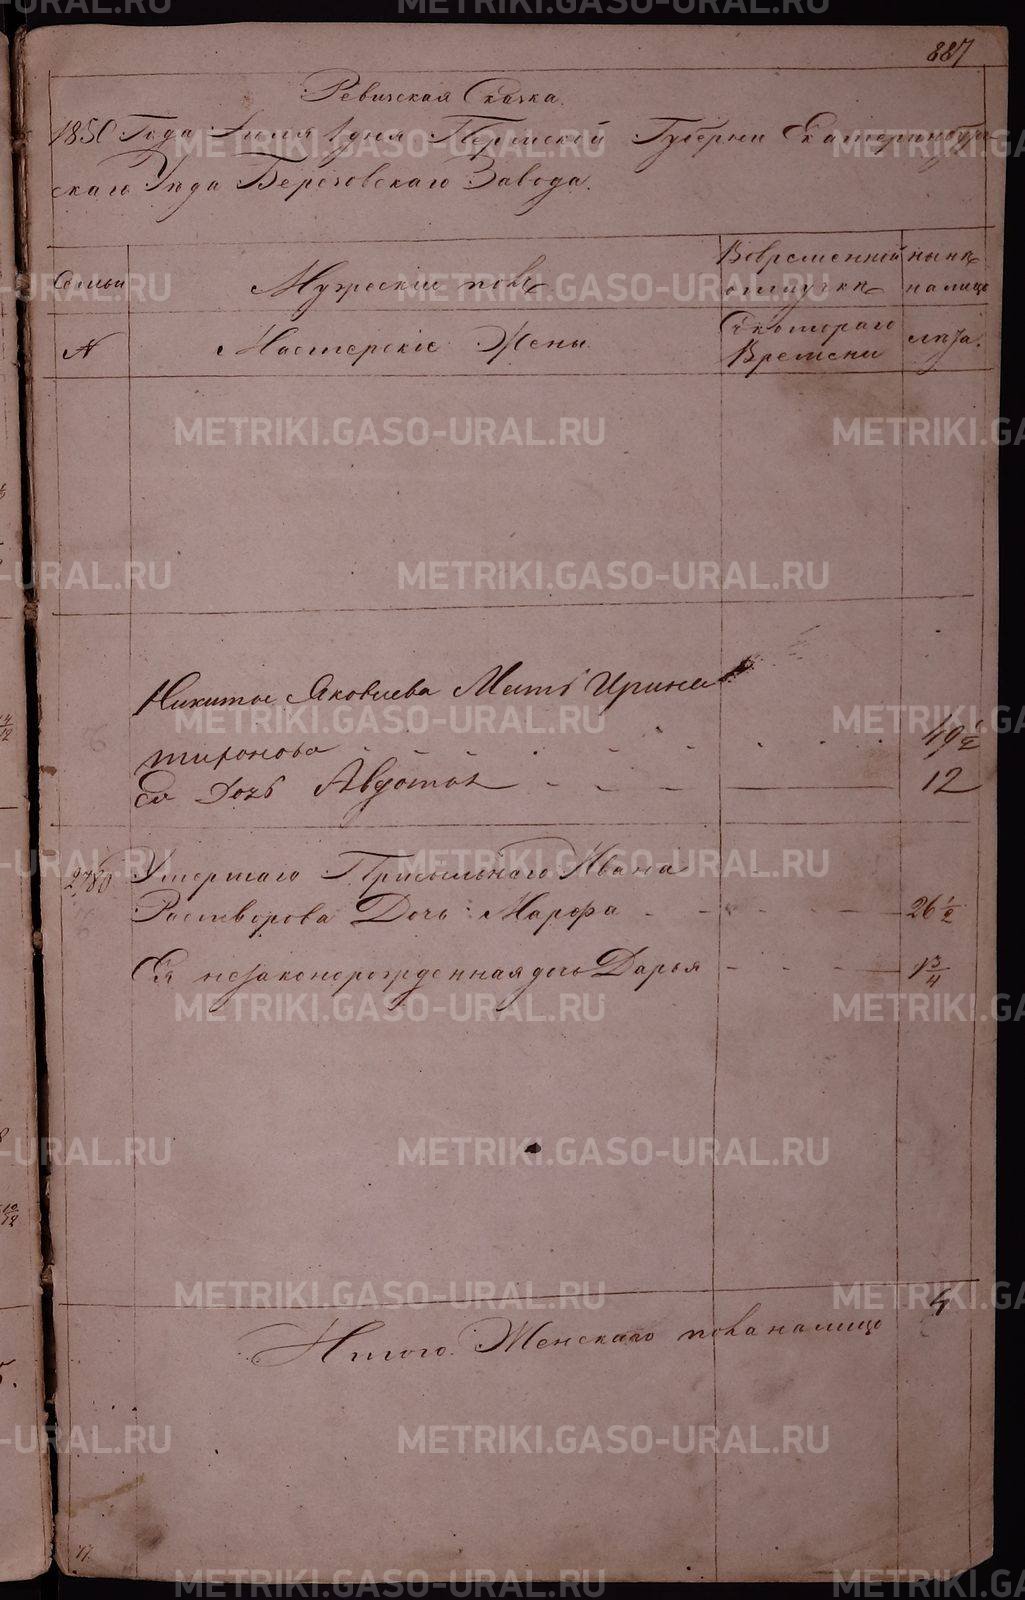 887
Ревизская Сказка.
1850 Года Июля 1 дня Пермской Губернии Екатеринбург
скаго Уезда Березовскаго Завода.
Семьи
Мужеский полъ
Вовременной
отлучке
ныне
на лицо
N
Мастерские Жены
С котораго
Времени
лета.
Никиты Яковлева Мать Ирина
миронова 49 1/2
ея Дочь Авдотья 12
2780 Умершаго Присыльного Ивана
Растворова Дочь Марфа 26 1/2
Ея незаконорожденная дочь Дарья 1 3/4
Итого Женскаго пола налицо 4
77
METRIKI.GASO-URAL.RU